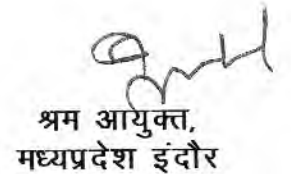 श्रम आयुक्त,
मध्यप्रदेश इंदौर